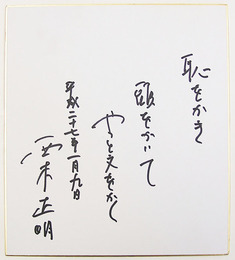 恥をかき
頭をかいて
やっと文をかく
平成二十七年一月九日
西木正明